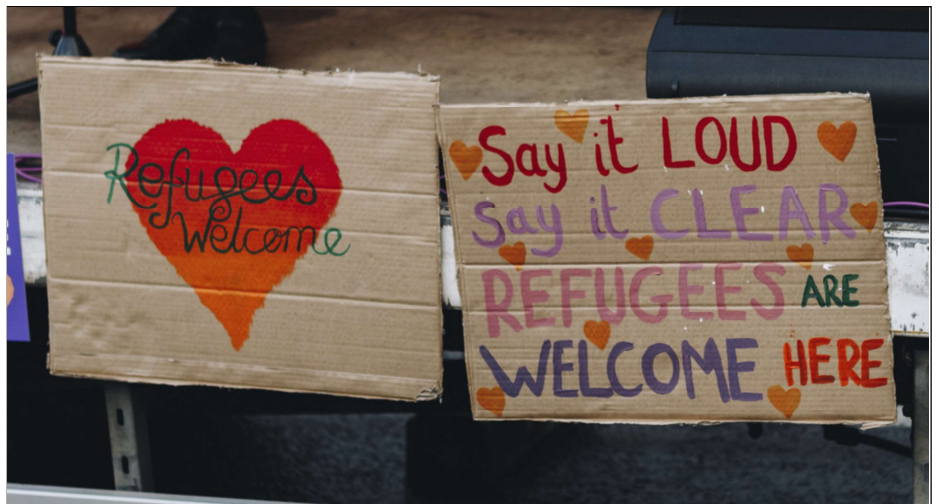 Refugees
Welcome
Say it LOUD
Say it CLEAR
REFUGEES ARE
WELCOME HERE